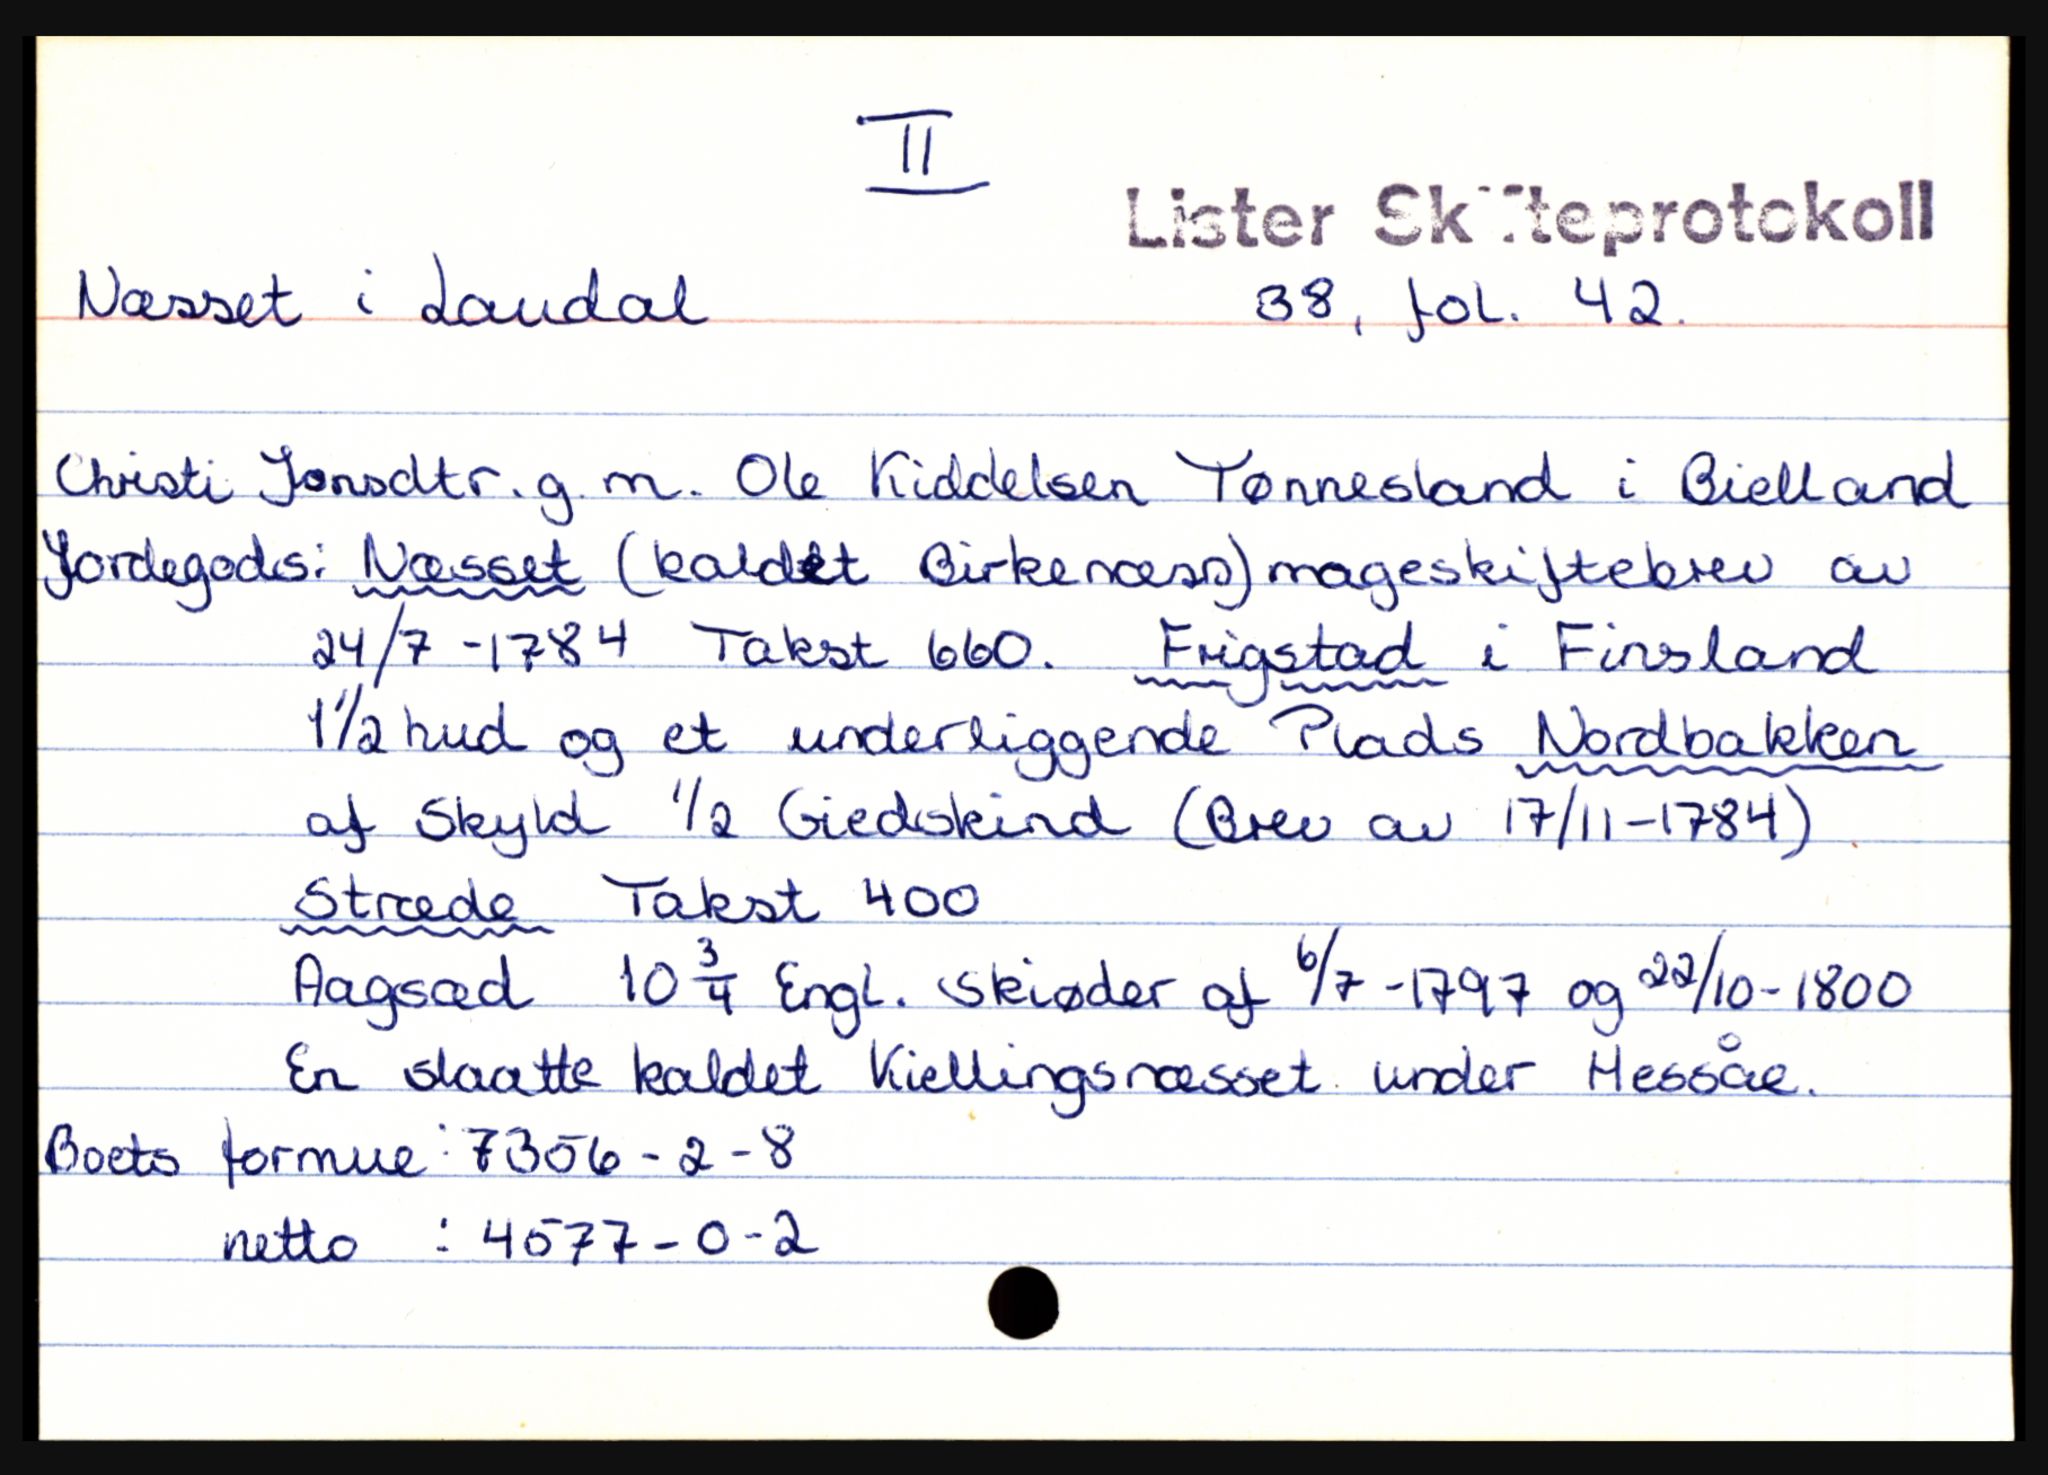 II
Lister Skifteprotokoll
Næsset i Laudal 38, fol. 42.
Christi Jonsdtr. g. m. Ole Kiddelsen Tønnesland i Bielland
Jordegods: Næsset (kaldet Birkenæss) mageskiftebrev av
24/7 - 1784 Takst 660. Frigstad i Finsland
1 1/2 hud og et underliggende Plads Nordbakken
af Skyld 1/2 Giedskind (Brev av 17/11-1784)
Stræde Takst 400
Aagsæd 10 3/4 Engl. skiøder af 6/7 -1797 og 22/10-1800
En slaatte kaldet Kiellingsnæsset under Hessåe.
Boets formue: 7356 - 2 - 8
netto : 4577 - 0 - 2